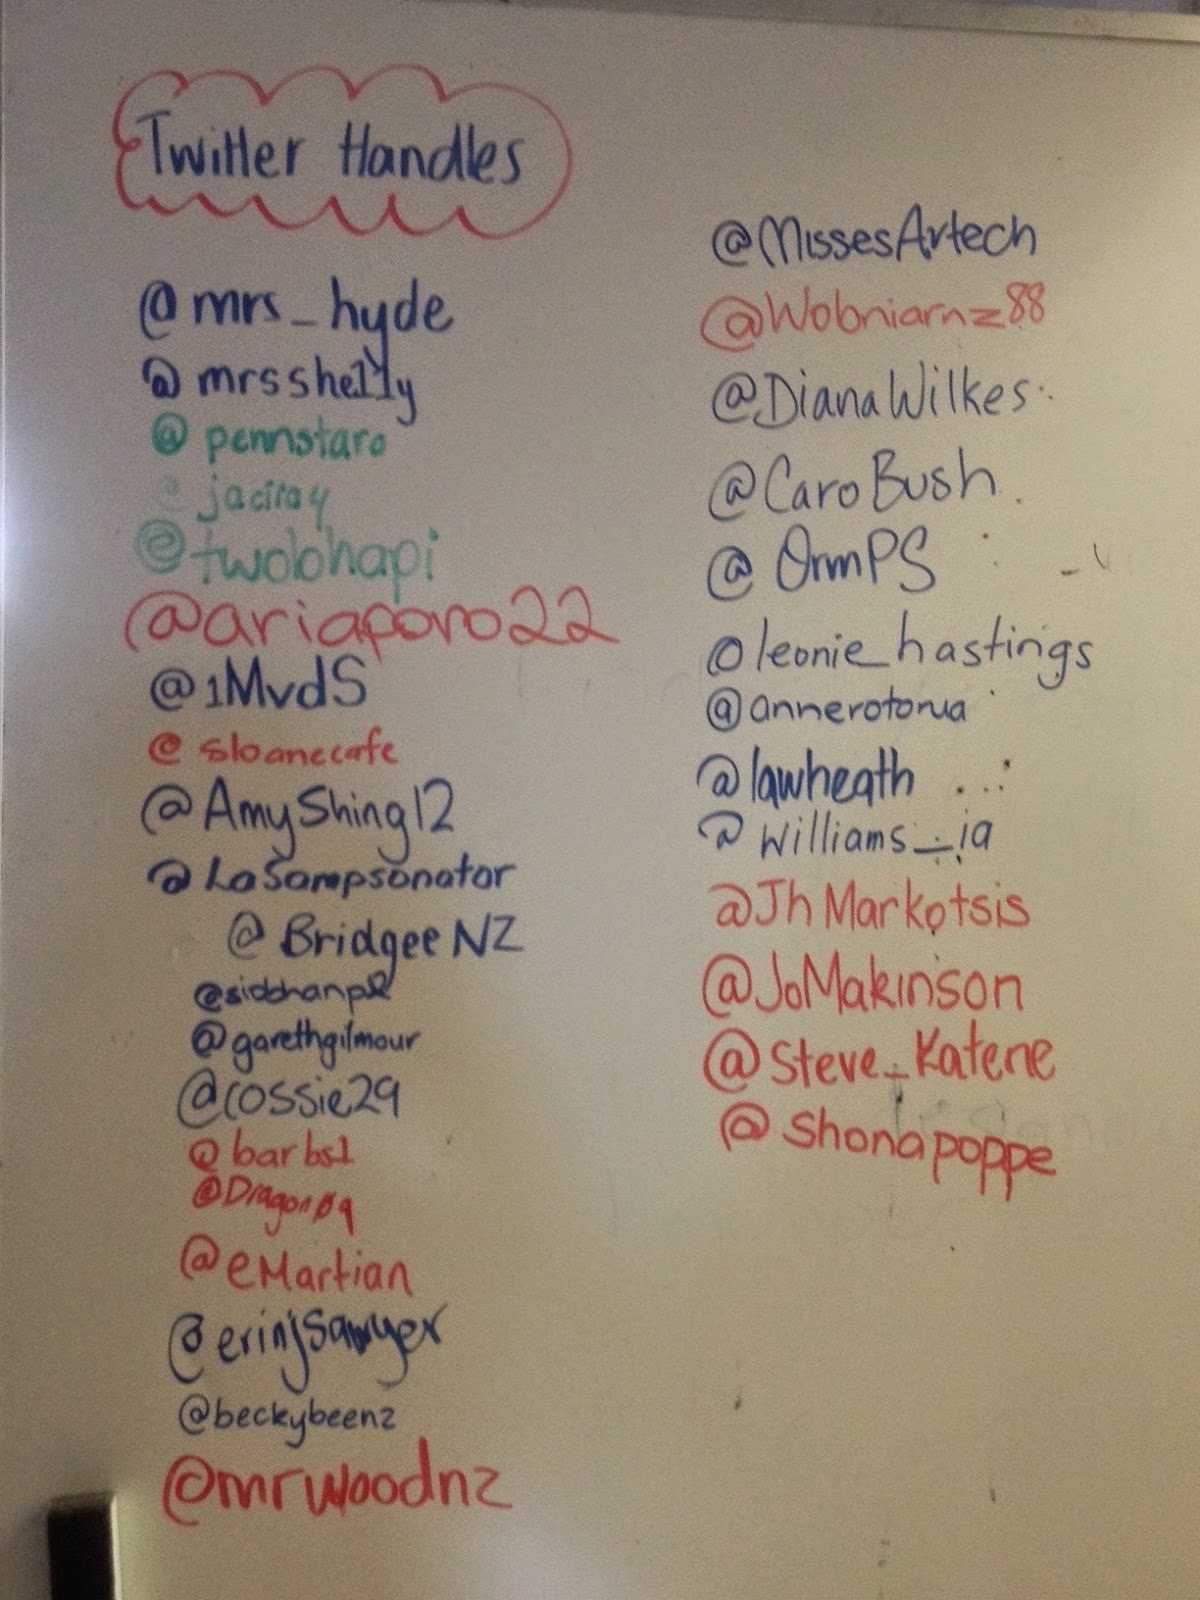 Twitter Handles
@mrs_hyde
@mrsshelly
@pennstaro
@jaciray
@twolohapi
@ariaporo22
@1MvdS
@sloanecafe
@AmyShing12
@LaSampsonator
@BridgeeNZ
@garethgilmour
@cossie29
@barbs1
@DragonØ9
@eMartian
@erinjsawyer
@beckybeenz
@mrwoodnz
@MissesArtech
@Wobniarnz88
@DianaWilkes
@CaroBush
@OrmPS
@leonie_hastings
@annerotorua
@lawheath
@williams_ia
@JhMarkotsis
@JoMakinson
@Steve_Katene
@Shonapoppe